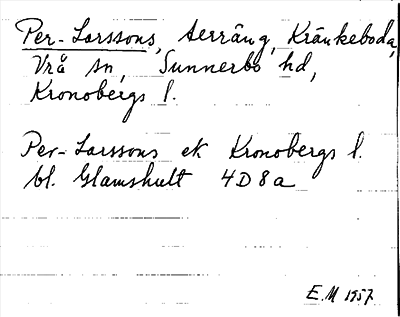 Per-Larssons, terräng, Kränkeboda,
Vrå sn, Sunnerbo hd,
Kronobergs l.
Per-Larssons ek Kronobergs l.
bl. Glamshult 4D8a
E.M 1957